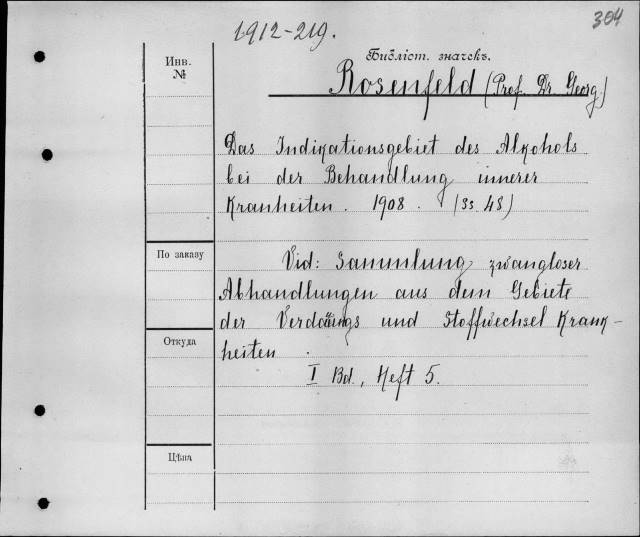 304
1912-219.
Библіот. значекъ.
Инв.
№
Rosenfeld (Prof. Dr. Georg.)
Das Indikationsgebiet des Alkohols
bei der Behandlung innerer
Kranheiten. 1908. (ss. 48)
По заказу
Vid: Sammlung zwangloser
Abhandlungen aus dem Gebiete
der Verdauungs und Stoffwechsel Krank-
Откуда
heiten.
I Bd., Heft 5.
Цѣна